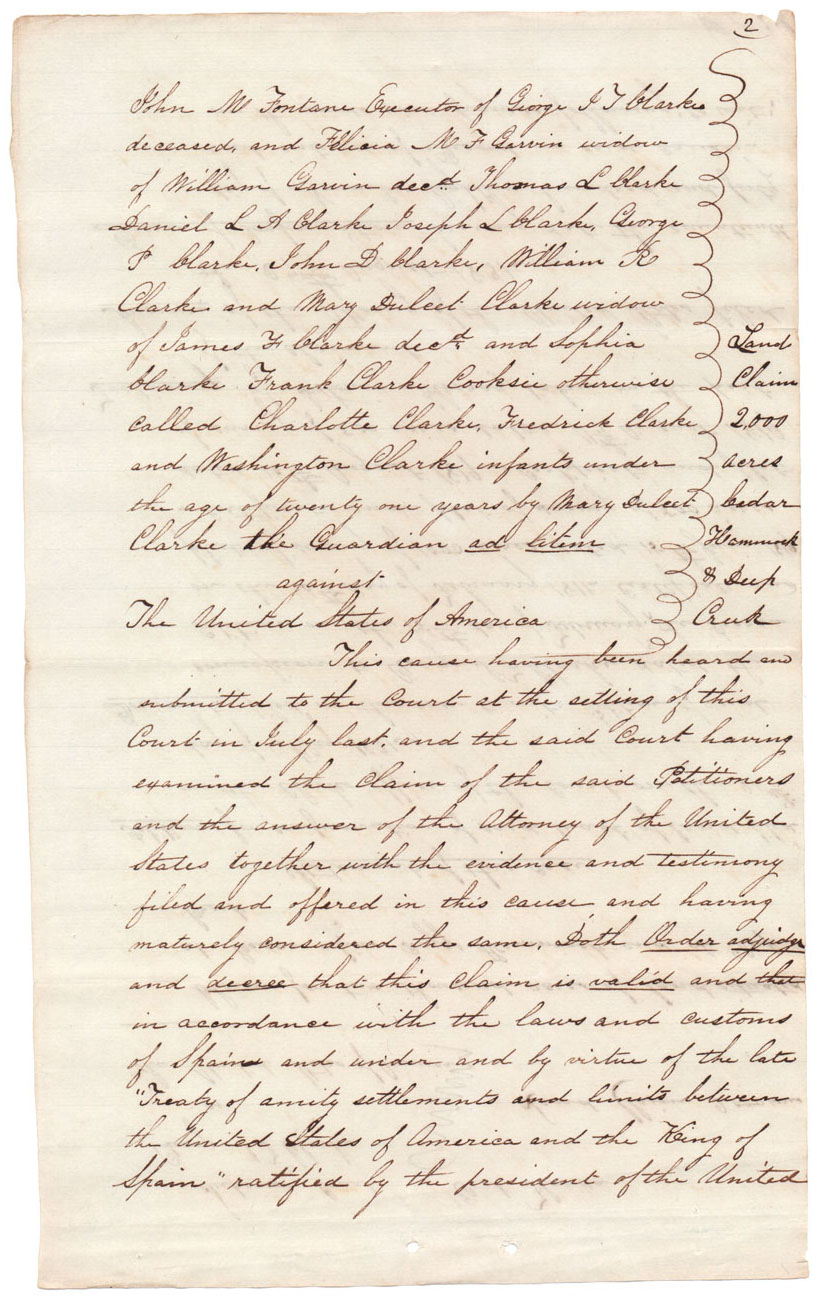 2
John M Fontane Executor of George J T Clarke
deceased, and Felicia M F Garvin widow
of William Garvin decd. Thomas L Clarke
Daniel L A Clarke Joseph L Clarke, George
P Clarke, John D Clarke, William R
Clarke and Mary Dulcet Clarke widow
of James F Clarke decd. and Sophia
Clarke Frank Clarke Cooksie otherwise
called Charlotte Clarke, Fredrick Clarke
and Washington Clarke infants under
the age of twenty one years by Mary Dulcet
Clarke the Guardian ad litem
against
The United States of America
Land
Claim
2,000
acres
Cedar
Hammock
& Deep
Creek
This cause having been heard and
submitted to the Court at the setting of this
Court in July last. and the said Court having
examined the claim of the said Petitioners
and the answer of the Attorney of the United
States together with the evidence and testimony
filed and offered in this cause and having
maturely considered the same, Doth Order adjudge
and decree that this claim is valid and that
in accordance with the laws and customs
of Spain and under and by virtue of the late
"Treaty of amity settlements and limits between
the United States of America and the King of
Spain" ratified by the president of the United